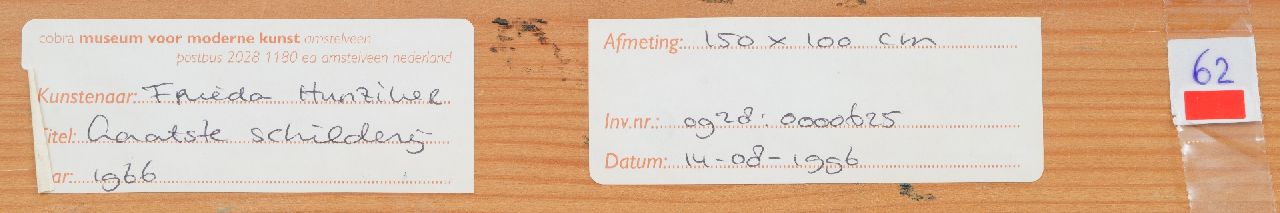 cobra museum voor moderne kunst amstelveen
postbus 2028 1180 ea amstelveen nederland
Kunstenaar: Frieda Hunziker
itel: Laatste schilderij
ar: 1966
Afmeting: 150 x 100 cm
Inv.nr.: og28: 0000625
Datum: 14-08-1996
62